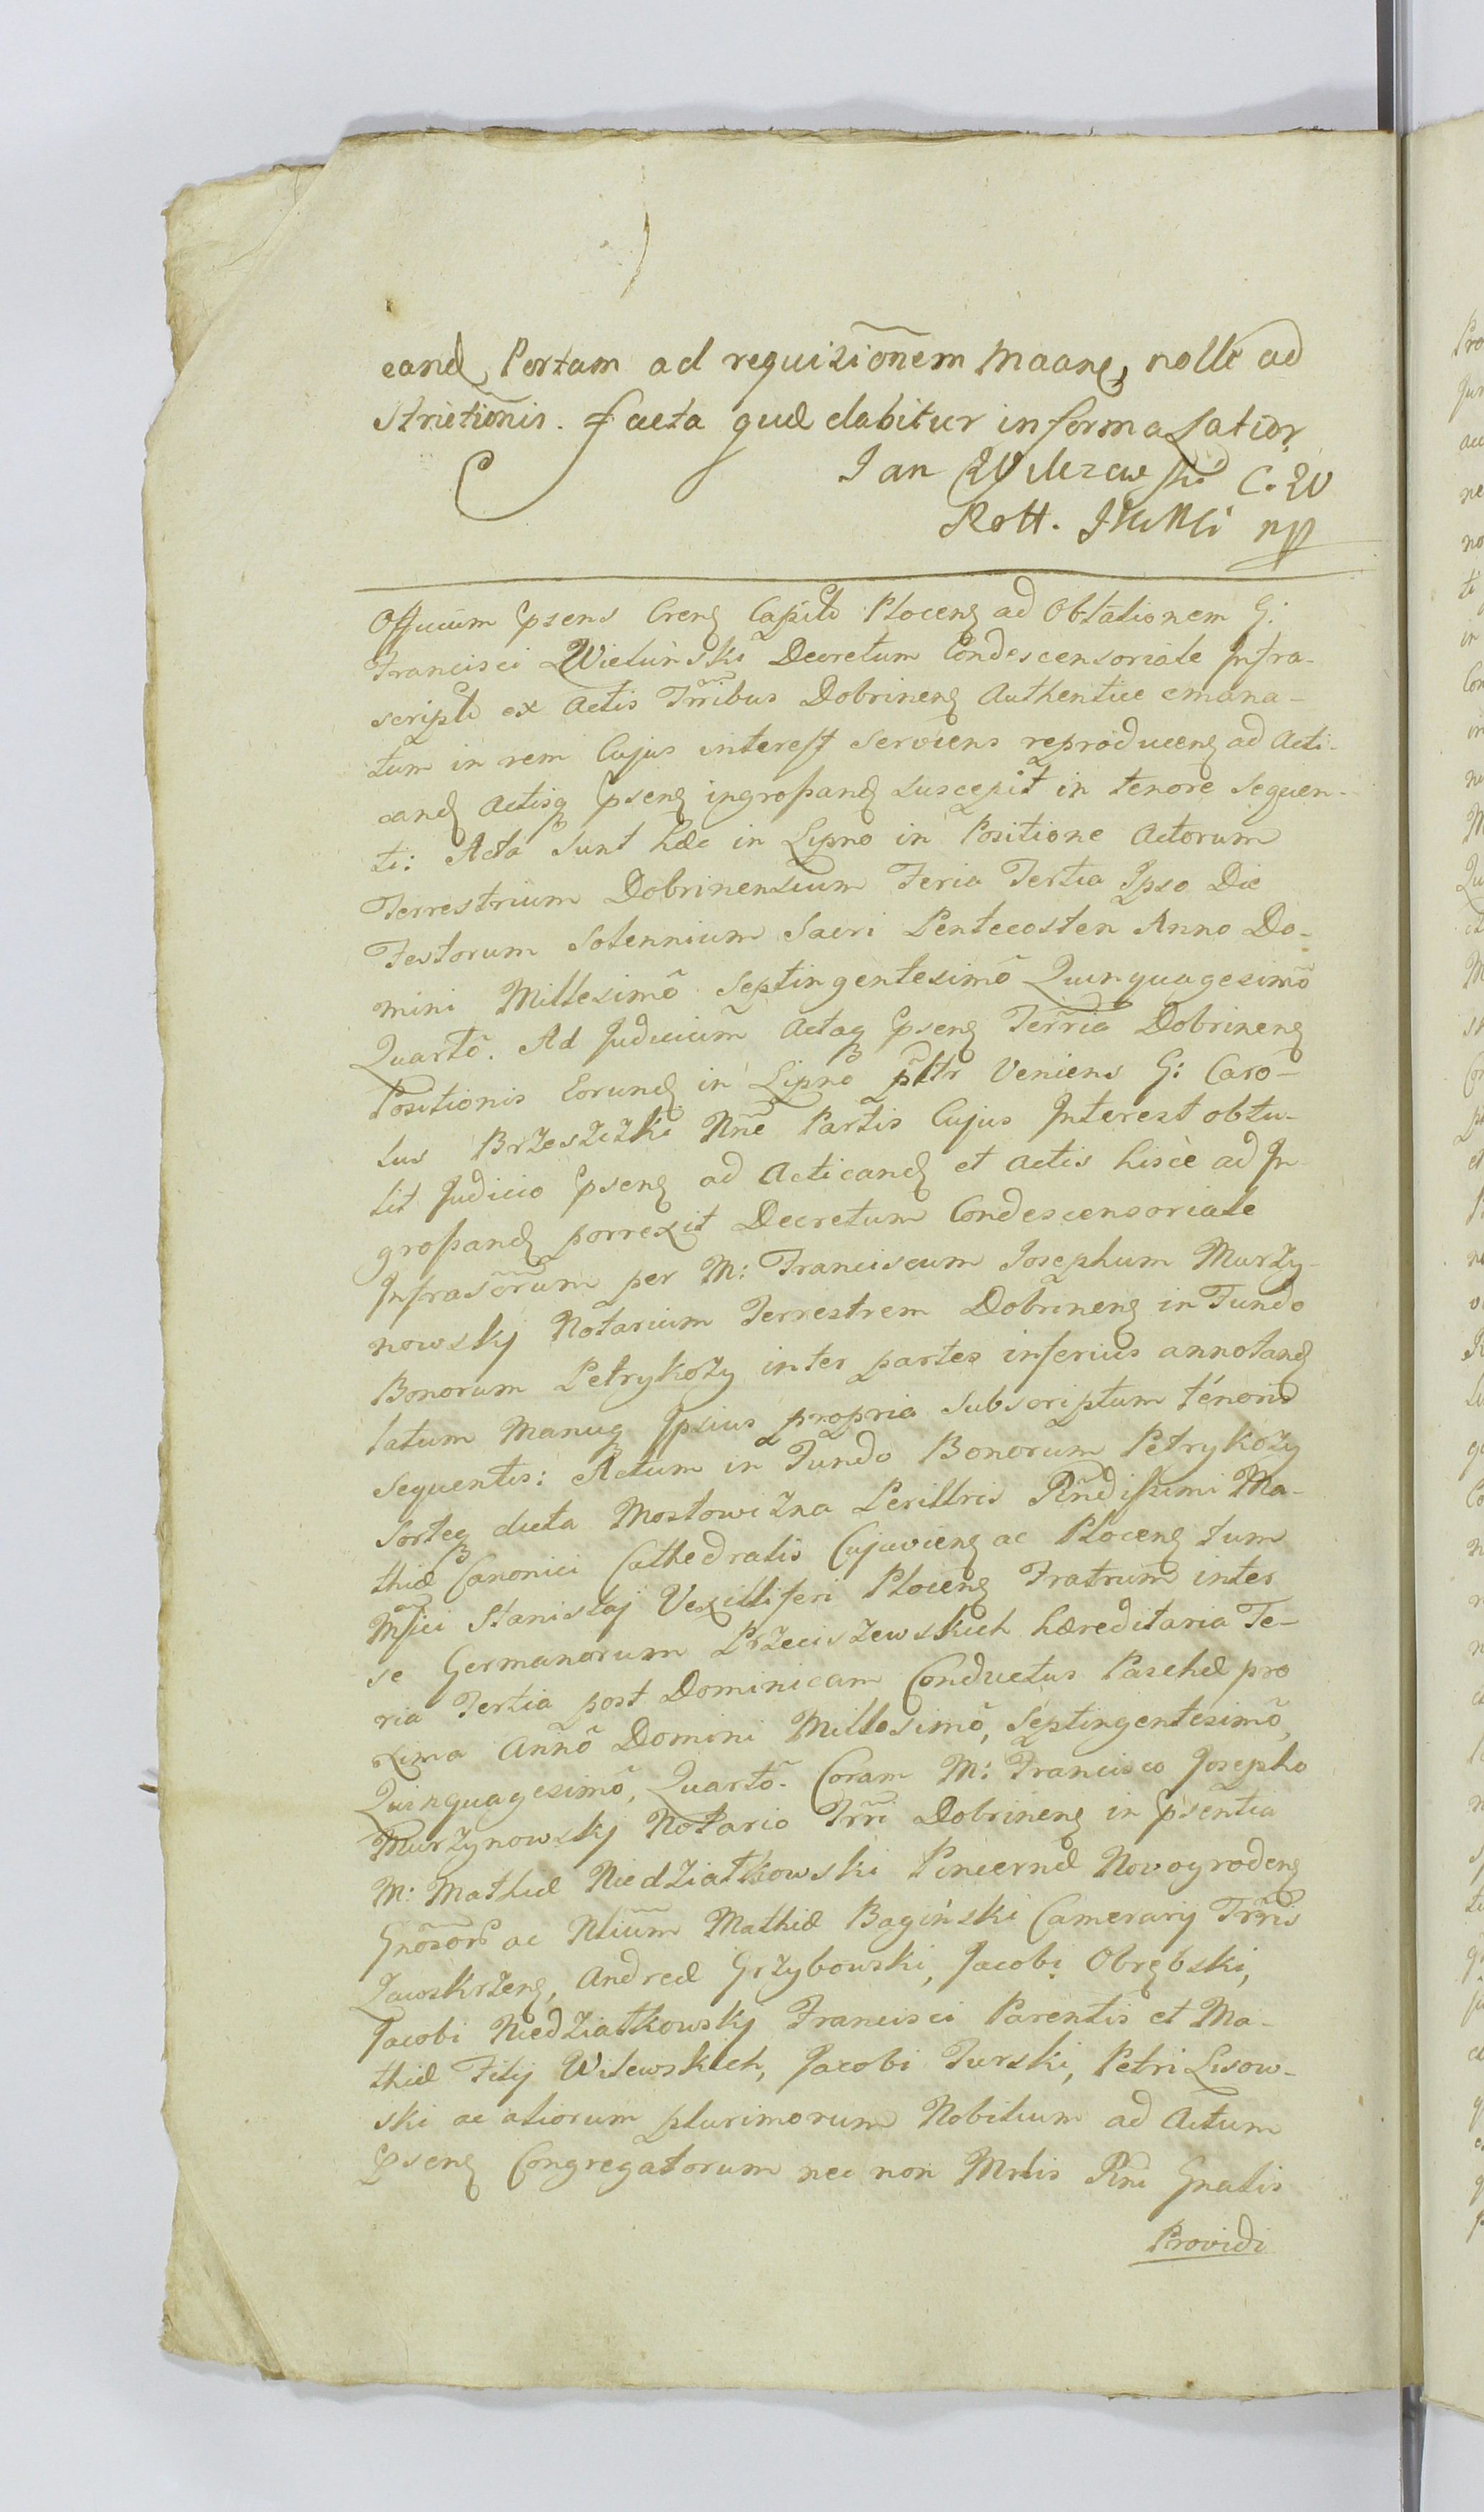 eand Portam ad requisiõnem
Strictiõnis. facta quæ dabitur informa
Jan C. W

Officium Ppsens Crens Capitle Plocens ad Oblationem G:
Francisci Wieluński Decretum Condescensoriale Infra-
scriptt ex Actis Trribus Dobrinens Authentice emana-
tum in rem Cujus interest serviens reproducens ad Acti-
cand Actisq Ppsens ingrossand suscepit in tenore sequen-
ti: Acta sunt hæc in Lipno in Positione Actorum
Terrestrium Dobrinensium Feria Tertia Ipso Die
Festorum Solennium Sacri Pentecosten Anno Do-
mini Millesimõ Septingentesimõ Quinquagesimõ
Quartõ. Ad Judicium Actaq Ppsens Terria Dobrinens
Positionis Eorund in Lipno pltr Veniens G: Caro-
lus Brzeszizki Nñe Partis Cujus Interest obtu-
lit Judicio Ppsens ad Acticand et Actis hisce ad In-
grossand porrexit Decretum Condescensoriale
Infrasõrum per M: Franciscum Josephum Murzy-
nowskj Notarium Terrestrem Dobrinens in Fundo
Bonorum Petrykozy inter partes inferius annotand
latum Manuq Ipsius propria Subscriptum tenoris
sequentis: Actum in Fundo Bonorum Petrykozy
Sorteq dicta Mostowizna Perillris Rñdissimi Ma-
thiæ Canonici Cathedralis Cujaviens ac Plocens tum
Mfici Stanislaj Vexilliferi Plocens Fratrum inter
se Germanorum Przeciszewskich hæreditaria Fe-
ria Tertia post Dominicam Conductus Paschæ pro
xima Annõ Domini Millesimõ, Septingentesimõ,
Quinquagesimõ, Quartõ. Coram M: Francisco Josepho
Murzynowskj Notario Trri Dobrinens in Ppsentia
M: Mathiæ Niedziałkowski Pincernæ Novogrodens
Gñosor ac Nlium Mathiæ Bagiński Camerarij Trris
Zawskrzens, Andreæ Grzybowski, Jacobi Obrębski,
Jacobi Niedziałkowskj Francisci Parentis et Ma-
thiæ Filij Wilewskich, Jacobi Turski, Petri Lisow-
ski ac aliorum plurimorum Nobilium ad Actum
Ppsens Congregatorum nec non Mrlis Rñi Gnalis
Providi